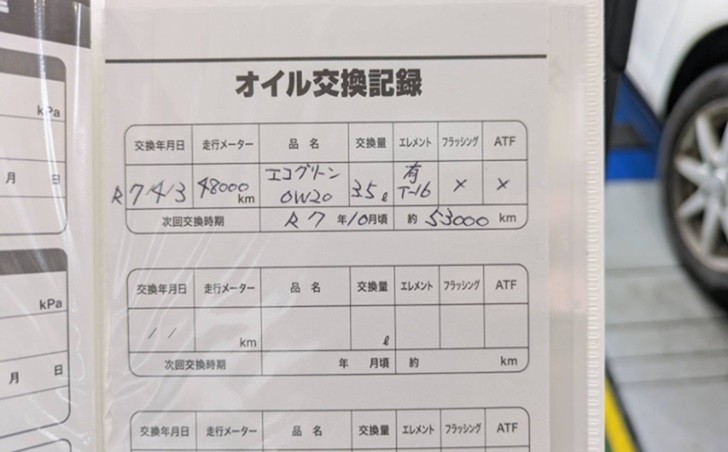 オイル交換記録
交換年月日 走行メーター 品名 交換量 エレメント フラッシング ATF
R7 4/3 48000 km エコグリーン 0W20 3.5 ℓ 有 T-16 × ×
次回交換時期 R7 年10月頃 約 53000 km
交換年月日 走行メーター 品名 交換量 エレメント フラッシング ATF
/ / km ℓ
次回交換時期 年 月頃 約 km
交換年月日 走行メーター 品名 交換量 エレメント フラッシング ATF
kPa
月 日
kPa
月 日